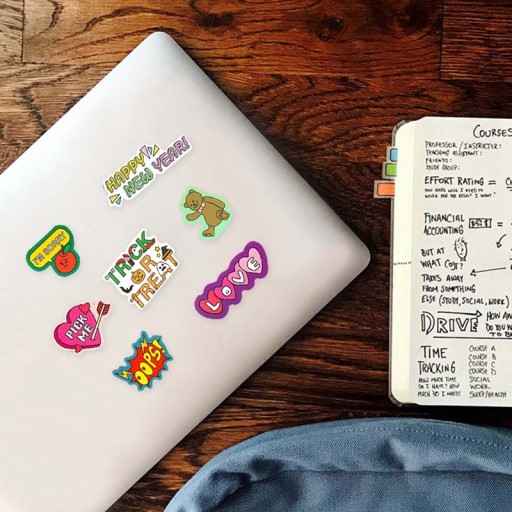 HAPPY
NEW YEAR!
I'M SORRY
TRICK
OR
TREAT
LOVE
PICK
ME
OOPS!
COURSES
PROFESSOR / INSTRUCTOR:
TEACHING ASSISTANT:
FRIENDS:
STUDY GROUP:
EFFORT RATING =
FINANCIAL
ACCOUNTING
BUT AT
WHAT COST?
TAKES AWAY
FROM SOMETHING
ELSE (STUDY, SOCIAL, WORK)
DRIVE HOW
DO YOU
TO
TIME
TRACKING
HOW MUCH TIME
DO I HAVE? HOW
MUCH DO I NEED?
COURSE A
COURSE B
COURSE C
COURSE D
SOCIAL
WORK
SLEEP/HEALTH